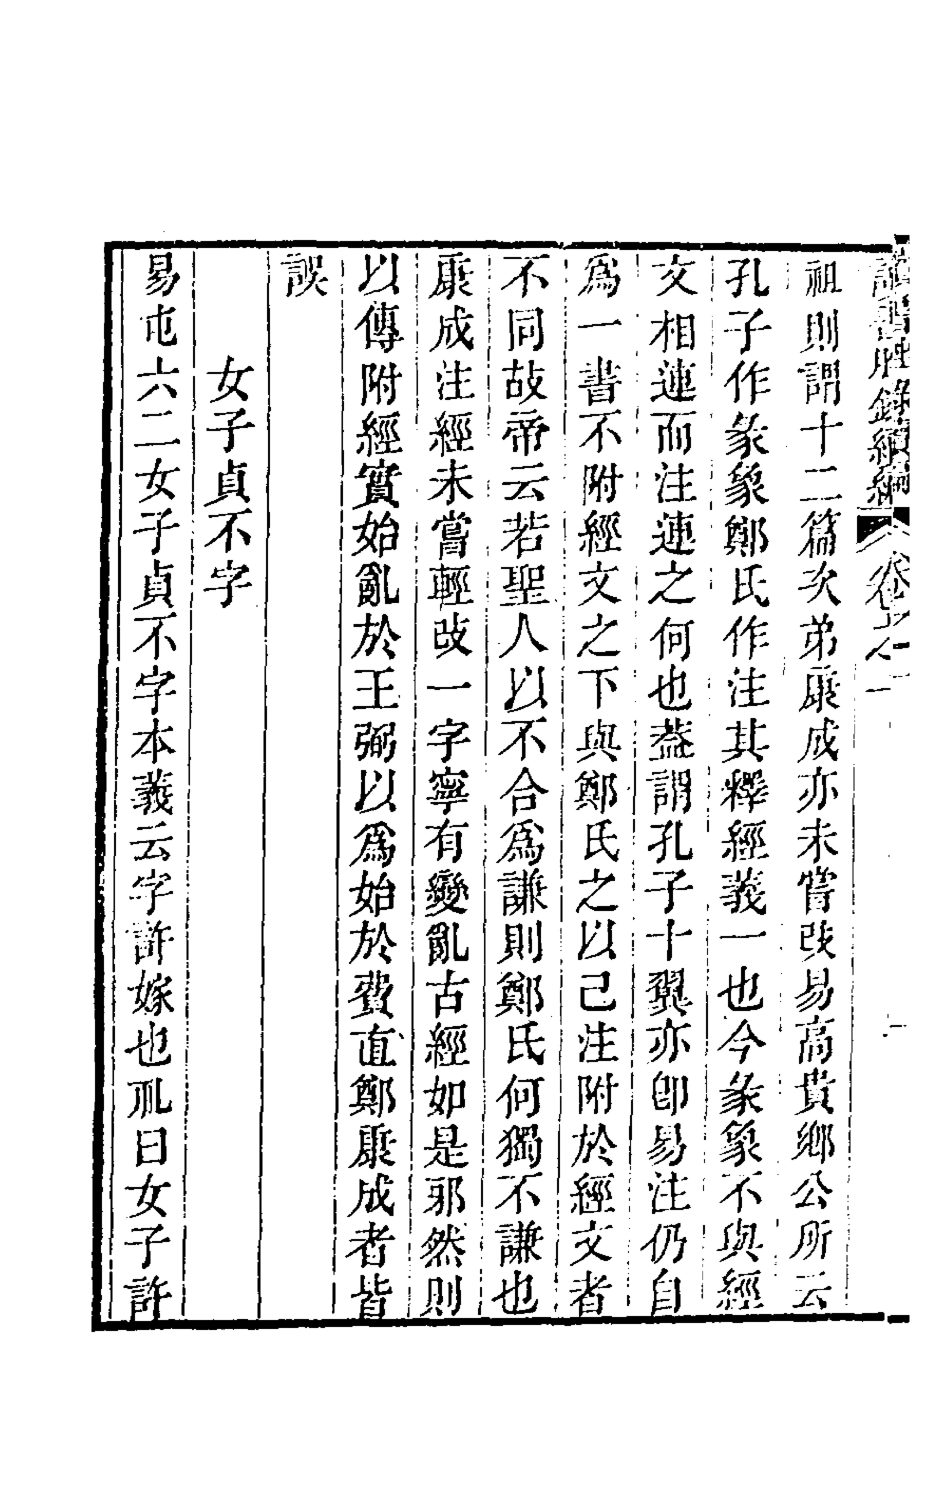 讀書脞錄續編 卷一
祖則謂十二篇次弟康成亦未嘗改易高貴鄉公所云
孔子作彖象鄭氏作注其釋經義一也今彖象不與經
文相連而注連之何也葢謂孔子十翼亦卽易注仍自
爲一書不附經文之下與鄭氏之以己注附於經文者
不同故帝云若聖人以不合爲謙則鄭氏何獨不謙也
康成注經未嘗輕改一字寧有變亂古經如是邪然則
以傳附經實始亂於王弼以爲始於費直鄭康成者皆
誤
女子貞不字
易屯六二女子貞不字本義云字許嫁也禮曰女子許